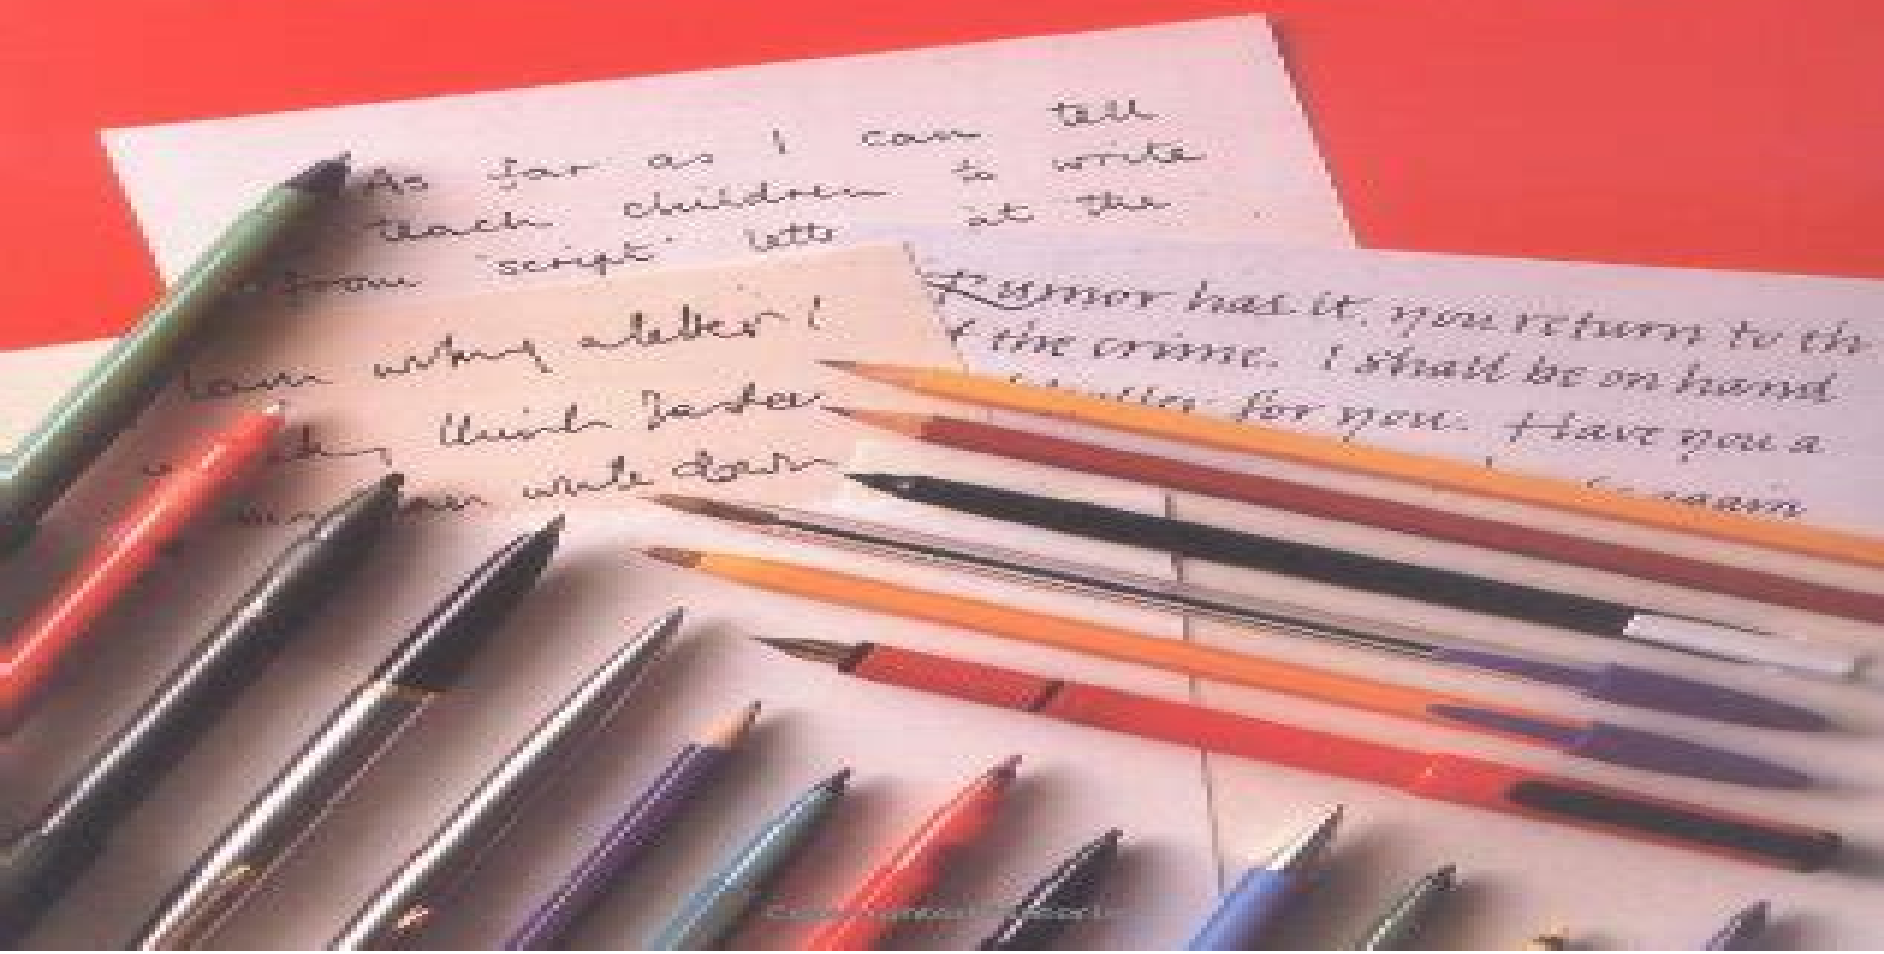 As far as I can tell
teach children to write
from "script" lette at the
I am writing a letter!
think faster
write down
Rumor has it, you return to th
the crime. I shall be on hand
for you. Have you a